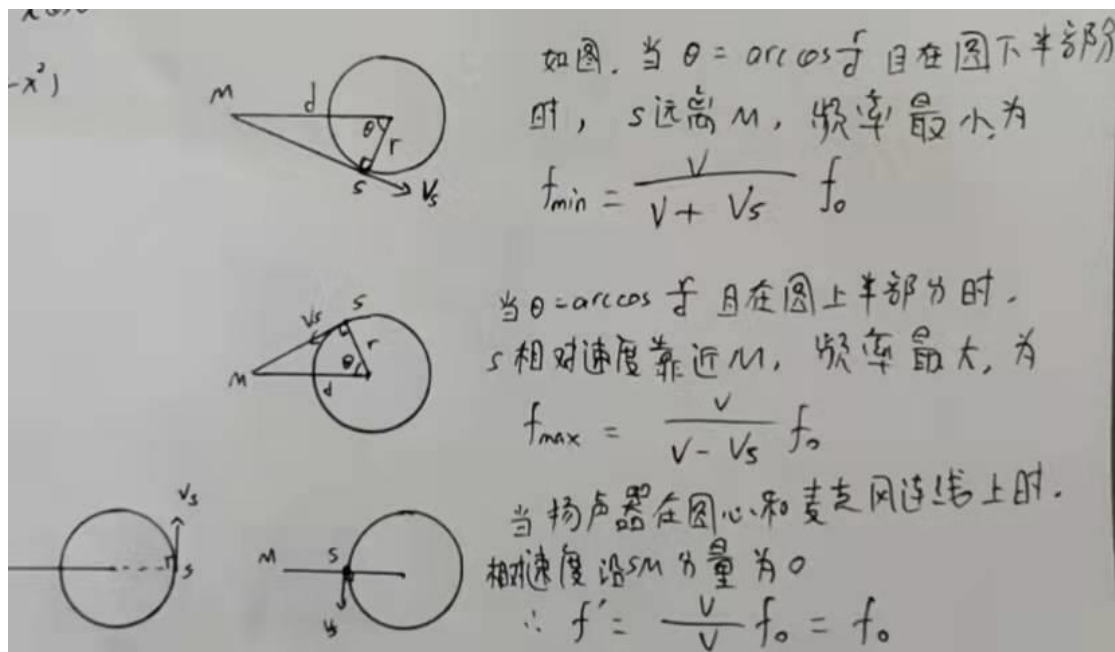 -x²)
M d θ r S Vs
如图. 当 θ = arccos r/d 且在圆下半部分
时, S远离M, 频率最小,为
f_min = V/(V + Vs) f₀
Vs S r θ M d
当θ=arccos r/d 且在圆上半部分时.
S相对速度靠近M, 频率最大, 为
f_max = V/(V - Vs) f₀
Vs S
M S Vs
当扬声器在圆心和麦克风连线上时.
相对速度沿SM分量为0
∴ f' = V/V f₀ = f₀